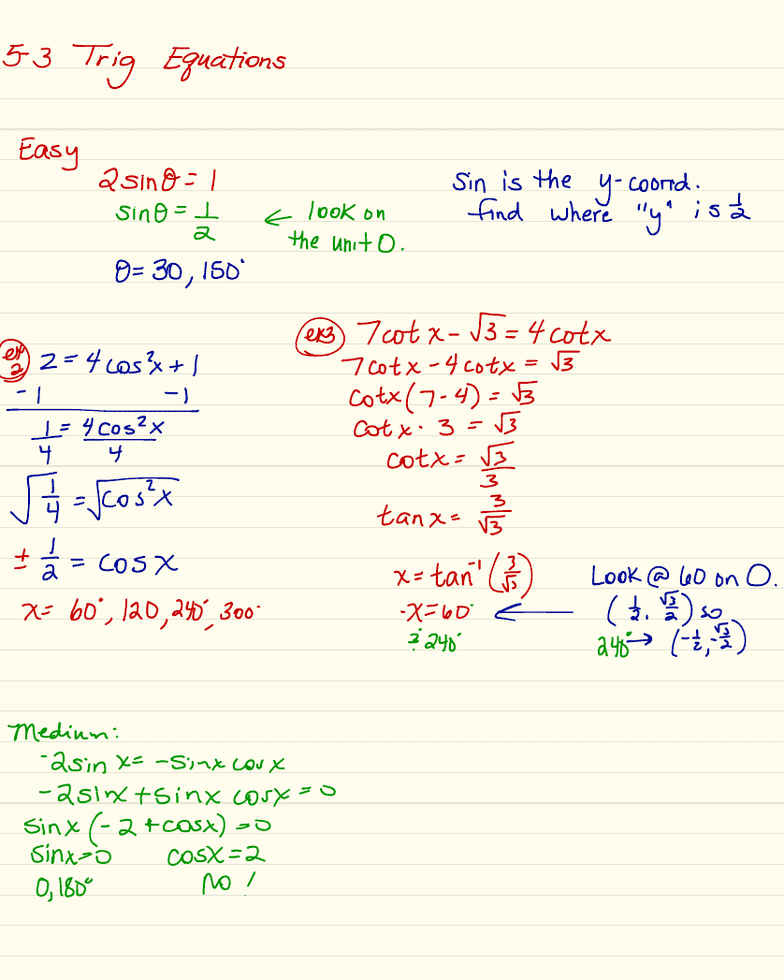 5-3 Trig Equations
Easy
2sinθ = 1
sinθ = 1/2 ← look on
the unit O.
θ = 30, 150°
Sin is the y-coord.
find where "y" is 1/2
ex 2 2 = 4cos²x + 1
-1 -1
1/4 = 4cos²x/4
√(1/4) = √(cos²x)
± 1/2 = cosx
x = 60°, 120, 240°, 300°
ex3 7cotx - √3 = 4cotx
7cotx - 4cotx = √3
cotx(7-4) = √3
cotx · 3 = √3
cotx = √3/3
tanx = 3/√3
x = tan⁻¹(3/√3)
x = 60° ←
240°
Look @ 60 on O.
(1/2, √3/2) so
240° → (-1/2, -√3/2)
Medium:
-2sinx = -sinx cosx
-2sinx + sinx cosx = 0
sinx(-2 + cosx) = 0
sinx = 0 cosx = 2
0, 180° No!